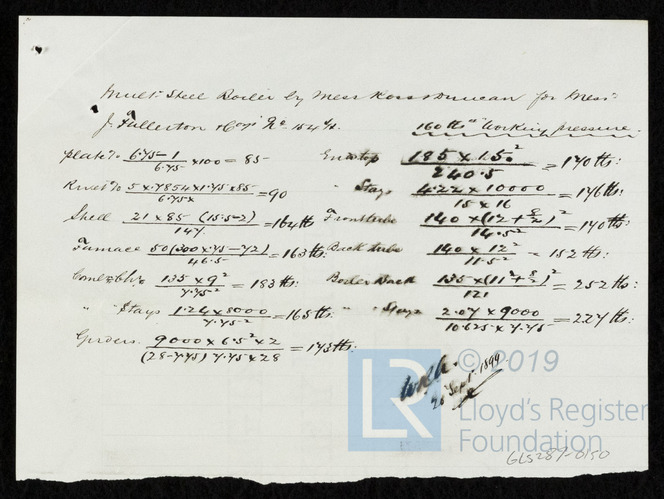 Mult: Steel Boiler by Mess Ross & Duncan for Mess:
J. Fullerton & Coy's No. 154 160 lbs Working pressure.
plate % 6.75 - 1 / 6.75 × 100 = 85
Rivet % 5 × .7854 × 1.75 × 85 / 6.75 × = 90
Shell 21 × 85 (15.5 - 2) / 147 = 164 lbs
Furnace 50 (300 × .75 - 72) / 46.5 = 163 lbs
135 × 9² / 7.75² = 183 lbs
" Stays 1.24 × 8000 / 7.75² = 165 lbs
Girders 9000 × 6.5² × 2 / (28 - 7.75) 7.75 × 28 = 173 lbs:
End top 185 × 15² / 240.5 = 170 lbs:
" Stays 4.22 × 10000 / 15 × 16 = 176 lbs:
Front tube 140 × (12 + 2/2)² / 14.5² = 170 lbs:
Back tube 140 × 12² / 11.5² = 152 lbs:
Boiler Back 135 × (11² + )² / 121 = 252 lbs:
" Stays 2.07 × 9000 / 10.625 × 7.75 = 227 lbs:
26 Sept. 1899
© 2019
LR
Lloyd's Register
Foundation
GLS289-0150